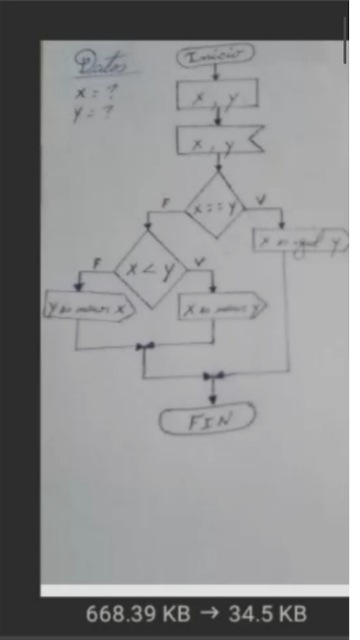 Datos
x = ?
y = ?
Inicio
x , y
x , y
x == y
F
V
x es igual y
x < y
F
V
y es menor x
x es menor y
FIN
668.39 KB → 34.5 KB